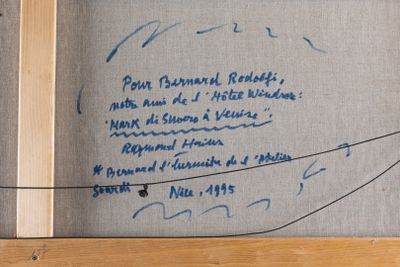 Pour Bernard Rodolfi,
notre ami de l'Hôtel Windsor:
"Mark di Suvero à Venise".
Raymond Hains
* Bernard l'hermite de l'Atelier
Soardi
Nice, 1995